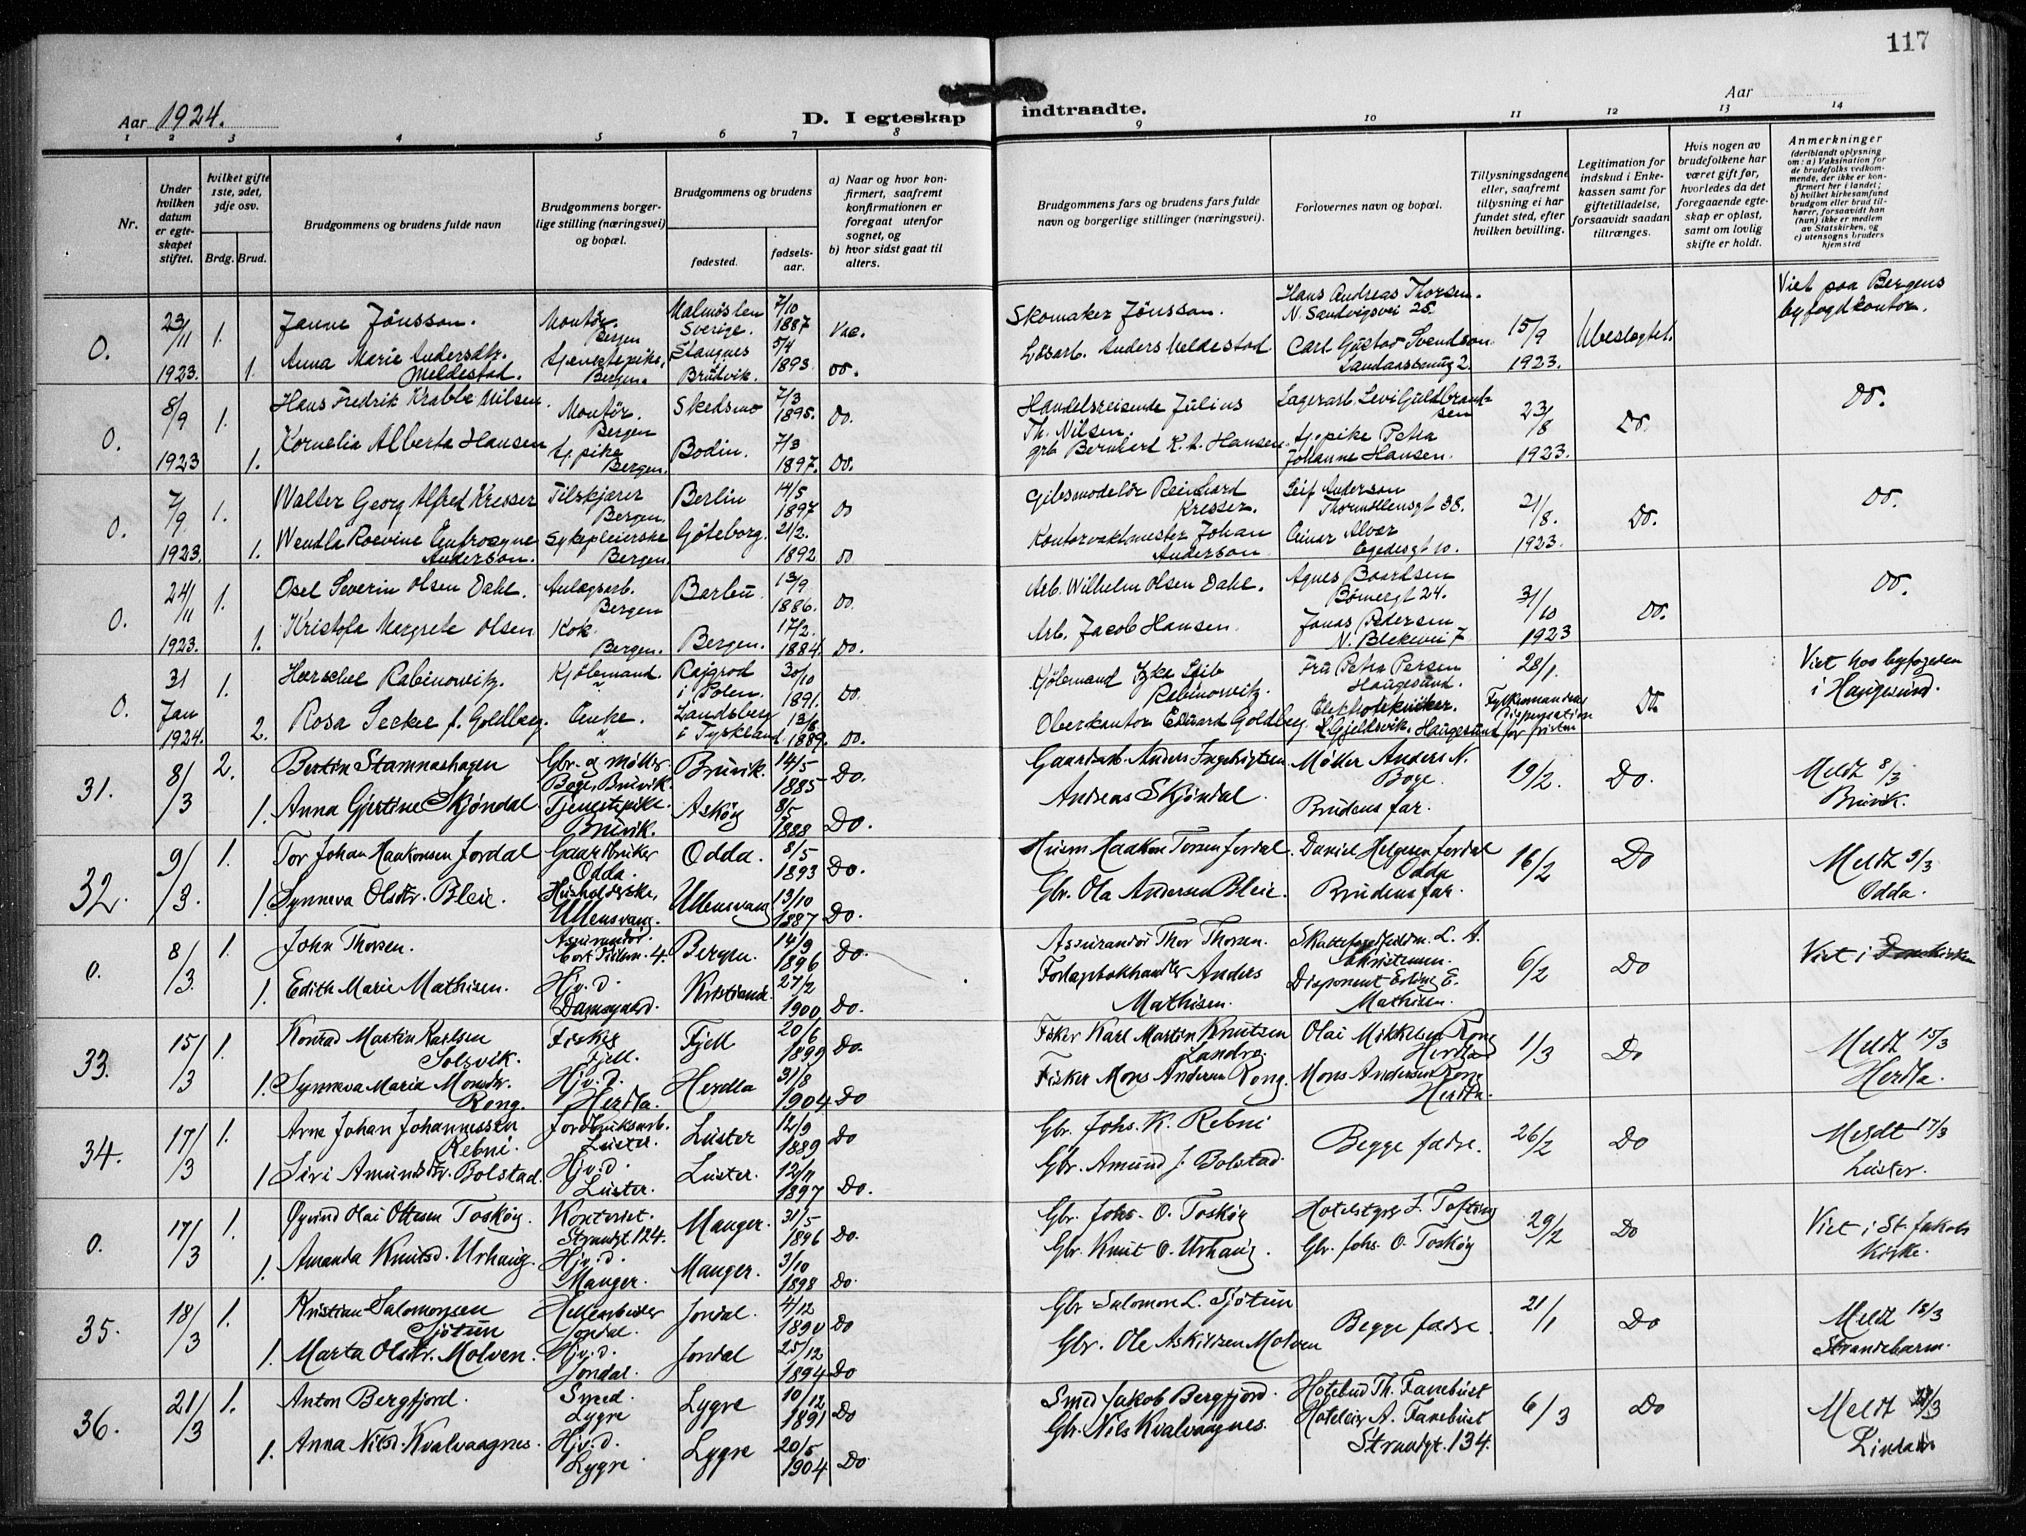 117
Aar 1924.
D. I egteskap indtraadte.
Aar
1 2 3 4 5 6 7 8 9 10 11 12 13 14
Nr.
Under hvilken datum er egteskapet stiftet.
hvilket gifte 1ste, 2det, 3dje osv.
Brdg. Brud.
Brudgommens og brudens fulde navn
Brudgommens borgerlige stilling (næringsvei) og bopæl.
Brudgommens og brudens
fødested.
fødselsaar.
a) Naar og hvor konfirmert, saafremt konfirmationen er foregaat utenfor sognet, og
b) hvor sidst gaat til alters.
Brudgommens fars og brudens fars fulde navn og borgerlige stillinger (næringsvei).
Forlovernes navn og bopæl.
Tillysningsdagene eller, saafremt tillysning ei har fundet sted, efter hvilken bevilling.
Legitimation for indskud i Enkekassen samt for giftetilladelse, forsaavidt saadan tiltrænges.
Hvis nogen av brudefolkene har været gift før, hvorledes da det foregaaende egteskap er opløst, samt om lovlig skifte er holdt.
Anmerkninger
(deriblandt oplysning om: a) Vaksination for de brudefolks vedkommende, der ikke er konfirmert her i landet; b) hvilket kirkesamfund brudgom eller brud tilhører, forsaavidt han (hun) ikke er medlem av Statskirken, og c) utensogns bruders hjemsted
0. 23/11 1923. 1. Janne Jönsson. Montör. Bergen Malmöslen Sverige. 7/10 1887 Skomaker Jönsson. Hans Andreas Thorsen. N. Sandvigsvei 25. 15/9 1923. Ubeslegtet. Viet paa Bergens byfogdkontor.
1. Anna Marie Andersdtr. Meldestad. Tjenestepike, Bergen. Bruvik. 5/4 1893. Do. Løsarb. Anders Meldestad Carl Gustav Svendson
0. 8/9 1923 1. Hans Fredrik Krabbe Nilsen. Montör. Bergen Skedsmo 7/3 1895. Do. Handelsreisende Julius Th. Nilsen. Lagerarb. Levi Guldbrandsen 23/8 1923. Do. Do.
1. Kornelia Alberta Hansen Tj.pike Bergen. Bodin. 7/3 1897. Do. Bernhard K. A. Hansen. Tj.pike Petra Johanne Hansen.
0. 7/9 1923. 1. Walter Georg Alfred Kresser Tilskjærer Bergen. Berlin 14/5 1897 Do Gibsmodelör Reinhard Kresser. Leif Anderson 38. 21/8. 1923. Do. Do.
1. Wendla Anderson. Sykepleierske Bergen. Göteborg. 21/2. 1892 Do Kontorvaktmester Johan Anderson Einar Alver Egedesgt 10.
0. 24/11 1923. 1. Osel Severin Olsen Dahl. Anlægsarb. Bergen Barbu 13/9 1886. Do. Arb. Wilhelm Olsen Dahl. Agnes Baardsen 24. 31/10 1923 Do. Do.
1. Kristofa Margrete Olsen Kok. Bergen. Bergen. 17/2. 1884. Do. Arb. Jacob Hansen. Jonas Pedersen N. Blekevei 7
0. 31 Jan 1924. 1. Herschel Rabinowitz. Kjøbmand. Rajgrod i Polen. 30/10 1891. Do. Kjøbmand Leib Rabinowitz. Fru Petra Persen Haugesund. 28/1. Fylkesmandens dispensation for fristen Do. Viet hos byfogeden i Haugesund.
2. Rosa Secker f. Goldberg. Enke. Landsberg i Tyskland 1889. Do. Oberkantor Eduard Goldberg Elektrotekniker. L. Gjeldsvik. Haugesund
31. 8/3 2. Bertin Stamneshagen Gbr. og møller Boge, Bruvik. Bruvik. 14/5 1885 Do. Gaardarb. Anders Ingebrigtsen Møller Anders N. Boge. 19/2. Do. Meldt 8/3 Bruvik.
1. Anna Gjertine Skjøndal Tjenestepike. Bruvik. Askøy 8/5 1888 Do. Andreas Skjøndal Brudens far.
32. 9/3. 1. Tor Johan Haakonsen Jordal Gaardbruker Odda. Odda. 8/5 1893 Do. Husm Haakon Torsen Jordal. Daniel Helgesen Jordal Odda 16/2 Do Meldt 9/3 Odda.
1. Synneva Olsdtr. Bleie. Husholderske, Ullensvang. Ullensvang 13/10 1887 Do. Gbr. Ola Andersen Bleie. Brudens far.
0. 8/3. 1. John Thorsen. Assurandør. Bergen. 14/9 1896 Do. Assurandør Thor Thorsen. L. A. Christensen. 6/2 Do Viet i Domkirken
1. Edith Marie Mathisen. Hjv.d. Damsgaard. Kristiania. 27/2 1900 Do. Forlagsbokhandler Anders Mathisen. Disponent Erling E. Mathisen.
33. 15/3 1. Konrad Martin Karlsen Solsvik. Fisker Fjell. Fjell 20/6 1899 Do. Fisker Karl Martin Knutsen Landro. Olai Mikkelsen Rong Herdla 1/3 Do Meldt 15/3 Herdla.
1. Synneva Marie Monsdtr. Rong. Hjv.d. Herdla. Herdla 31/8 1904 Do Fisker Mons Andersen Rong. Mons Andersen Rong Herdla.
34. 17/3 1. Arne Johan Johannessen Rebni. Jordbruksarb. Luster. Luster 12/9 1889 Do Gbr. Johs. K. Rebni Begge fædre. 26/2 Do Meldt 17/3 Luster.
1 Siri Amundsdtr. Bolstad. Hjv.d. Luster. Luster. 12/11 1897 Do. Gbr. Amund J. Bolstad.
0. 17/3 1. Øyvind Olai Ottesen Toskøy. Kontorist. Strandgt 124. Manger. 31/5 1896 Do. Gbr. Johs. O. Toskøy Tofting 29/2 Do Viet i St. Jakobs Kirke.
1. Amanda Knutsd. Urhaug. Hjv.d. Manger. Manger. 3/10 1898 Do. Gbr. Knut O. Urhaug. Gbr. Johs. O. Toskøy
35. 18/3 1. Kristian Salomonsen Sjøtun Jondal. Jondal. 4/12 1890 Do Gbr Salomon L. Sjøtun Begge fædre. 21/1 Do Meldt 18/3 Strandebarm.
1. Marta Olsdtr. Molven. Hjv.d. Jondal. Jondal 25/12 1894 Do Gbr. Ole Askildsen Molven
36. 21/3 1. Anton Bergfjord. Smed. Lygre Lygre 10/12 1891 Do Smed Jakob Bergfjord. Th. Fanebust 6/3 Do Meldt Lindaas
1. Anna Nilsd. Kvalvaagnes. Hjv.d. Lygre Lygre 20/5 1904 Do Gbr. Nils Kvalvaagnes. Hoteleier A. Fanebust Strandgt. 134.